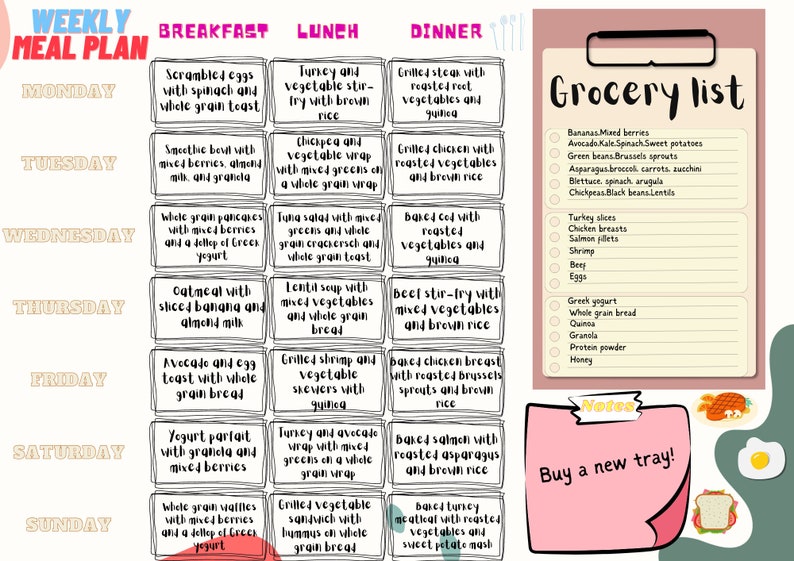 WEEKLY
MEAL PLAN
BREAKFAST LUNCH DINNER
MONDAY
Scrambled eggs
with spinach and
whole grain toast
Turkey and
vegetable stir-
fry with brown
rice
Grilled steak with
roasted root
vegetables and
quinoa
TUESDAY
Smoothie bowl with
mixed berries, almond
milk, and granola
Chickpea and
vegetable wrap
with mixed greens on
a whole grain wrap
Grilled chicken with
roasted vegetables
and brown rice
WEDNESDAY
Whole grain pancakes
with mixed berries
and a dollop of Greek
yogurt
Tuna salad with mixed
greens and whole
grain crackersch and
whole grain toast
Baked cod with
roasted
vegetables and
quinoa
THURSDAY
Oatmeal with
sliced banana and
almond milk
Lentil soup with
mixed vegetables
and whole grain
bread
Beef stir-fry with
mixed vegetables
and brown rice
FRIDAY
Avocado and egg
toast with whole
grain bread
Grilled shrimp and
vegetable
skewers with
quinoa
Baked chicken breast
with roasted Brussels
sprouts and brown
rice
SATURDAY
Yogurt parfait
with granola and
mixed berries
Turkey and avocado
wrap with mixed
greens on a whole
grain wrap
Baked salmon with
roasted asparagus
and brown rice
SUNDAY
Whole grain waffles
with mixed berries
and a dollop of Greek
yogurt
Grilled vegetable
sandwich with
hummus on whole
grain bread
Baked turkey
meatloaf with roasted
vegetables and
sweet potato mash
Grocery list
Bananas.Mixed berries
Avocado.Kale.Spinach.Sweet potatoes
Green beans.Brussels sprouts
Asparagus.broccoli. carrots. zucchini
Blettuce. spinach. arugula
Chickpeas.Black beans.Lentils
Turkey slices
Chicken breasts
Salmon fillets
Shrimp
Beef
Eggs
Greek yogurt
Whole grain bread
Quinoa
Granola
Protein powder
Honey
Notes
Buy a new tray!